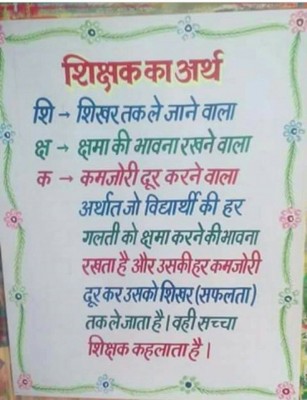 शिक्षक का अर्थ
शि → शिखर तक ले जाने वाला
क्ष → क्षमा की भावना रखने वाला
क → कमजोरी दूर करने वाला
अर्थात जो विद्यार्थी की हर
गलती को क्षमा करने की भावना
रखता है और उसकी हर कमजोरी
दूर कर उसको शिखर (सफलता)
तक ले जाता है। वही सच्चा
शिक्षक कहलाता है।